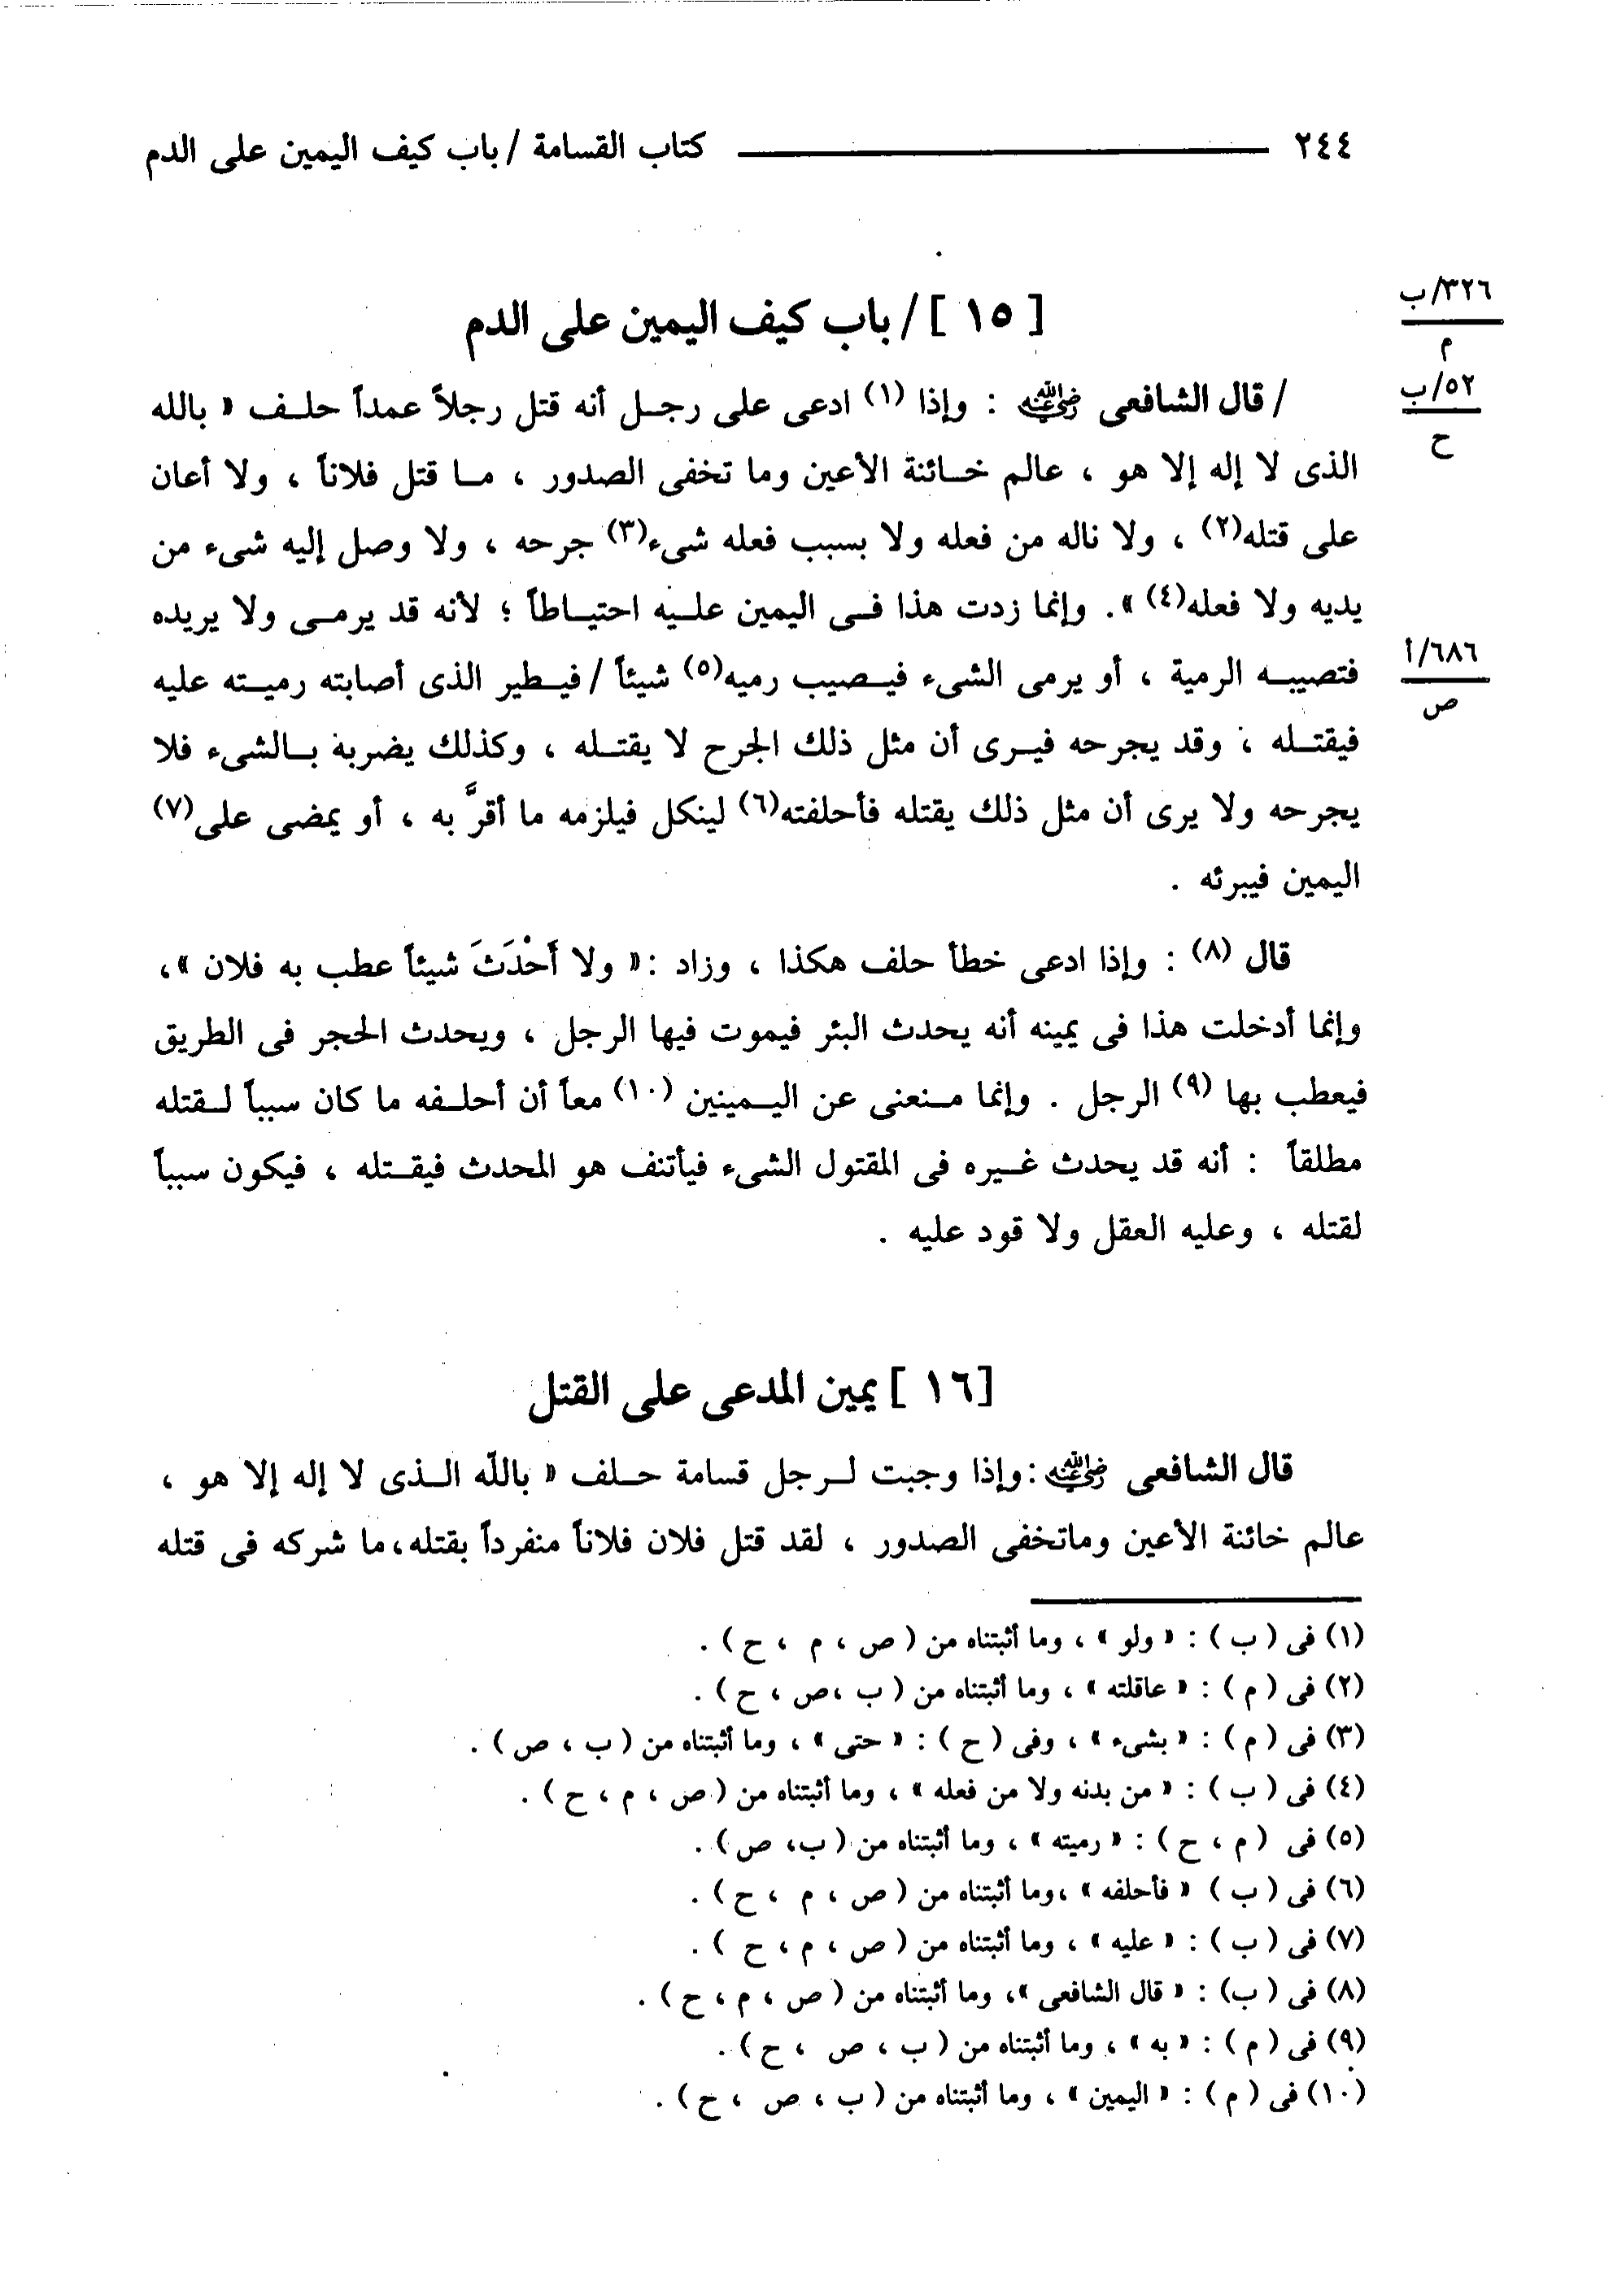 ٢٤٤ كتاب القسامة / باب كيف اليمين على الدم
٣٢٦/ب
م
[ ١٥ ] / باب كيف اليمين على الدم
٥٢/ب
ح
/ قال الشافعى رضي الله عنه : وإذا (١) ادعى على رجل أنه قتل رجلاً عمداً حلف « بالله
الذى لا إله إلا هو ، عالم خائنة الأعين وما تخفى الصدور ، ما قتل فلاناً ، ولا أعان
على قتله(٢) ، ولا ناله من فعله ولا بسبب فعله شىء(٣) جرحه ، ولا وصل إليه شىء من
يديه ولا فعله(٤) ». وإنما زدت هذا فى اليمين عليه احتياطاً ؛ لأنه قد يرمى ولا يريده
٦٨٦/أ
ص
فتصيبه الرمية ، أو يرمى الشىء فيصيب رميه(٥) شيئاً / فيطير الذى أصابته رميته عليه
فيقتله ، وقد يجرحه فيرى أن مثل ذلك الجرح لا يقتله ، وكذلك يضربه بالشىء فلا
يجرحه ولا يرى أن مثل ذلك يقتله فأحلفته(٦) لينكل فيلزمه ما أقرَّ به ، أو يمضى على(٧)
اليمين فيبرئه .
قال (٨) : وإذا ادعى خطأ حلف هكذا ، وزاد :« ولا أَحْدَثَ شيئاً عطب به فلان »،
وإنما أدخلت هذا فى يمينه أنه يحدث البئر فيموت فيها الرجل ، ويحدث الحجر فى الطريق
فيعطب بها (٩) الرجل . وإنما منعنى عن اليمينين (١٠) معاً أن أحلفه ما كان سبباً لقتله
مطلقاً : أنه قد يحدث غيره فى المقتول الشىء فيأتنف هو المحدث فيقتله ، فيكون سبباً
لقتله ، وعليه العقل ولا قود عليه .
[١٦ ] يمين المدعى على القتل
قال الشافعى رضي الله عنه :وإذا وجبت لرجل قسامة حلف « بالله الذى لا إله إلا هو ،
عالم خائنة الأعين وماتخفى الصدور ، لقد قتل فلان فلاناً منفرداً بقتله،ما شركه فى قتله
(١) فى ( ب ) : « ولو » ، وما أثبتناه من ( ص ، م ، ح ) .
(٢) فى ( م ) : « عاقلته » ، وما أثبتناه من ( ب ،ص ، ح ) .
(٣) فى ( م ) : « بشىء » ، وفى ( ح ) : « حتى » ، وما أثبتناه من ( ب ، ص ) .
(٤) فى ( ب ) : « من بدنه ولا من فعله » ، وما أثبتناه من ( ص ، م ، ح ) .
(٥) فى ( م ، ح ) : « رميته » ، وما أثبتناه من ( ب، ص ) .
(٦) فى ( ب ) « فأحلفه » ،وما أثبتناه من ( ص ، م ، ح ) .
(٧) فى ( ب ) : « عليه » ، وما أثبتناه من ( ص ، م ، ح ) .
(٨) فى ( ب) : « قال الشافعى »، وما أثبتناه من ( ص ، م ، ح ) .
(٩) فى ( م ) : « به » ، وما أثبتناه من ( ب ، ص ، ح ) .
(١٠) فى ( م ) : « اليمين » ، وما أثبتناه من ( ب ، ص ، ح ) .